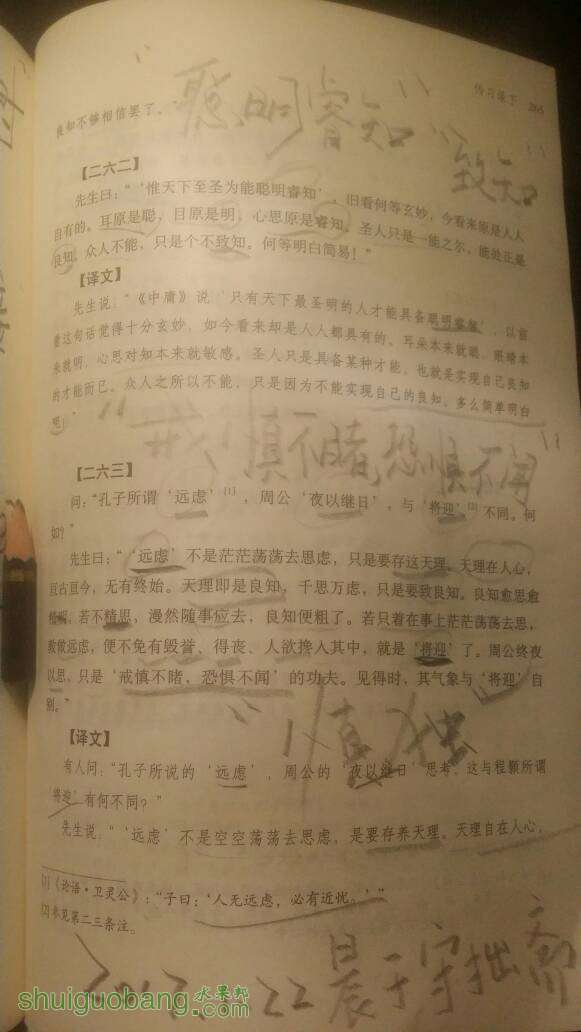 传习录下 265
良知不够相信罢了。
聪明睿知
致知
【二六二】
先生曰：“‘惟天下至圣为能聪明睿知’，旧看何等玄妙，今看来原是人人
自有的。耳原是聪，目原是明，心思原是睿知。圣人只是一能之尔，能处正是
良知。众人不能，只是个不致知。何等明白简易！”
【译文】
先生说：“《中庸》说‘只有天下最圣明的人才能具备聪明睿知’，以前
看这句话觉得十分玄妙，如今看来却是人人都具有的。耳朵本来就聪，眼睛本
来就明，心思对知本来就敏感。圣人只是具备某种才能，也就是实现自己良知
的才能而已。众人之所以不能，只是因为不能实现自己的良知。多么简单明白
吧！”
戒慎不睹恐惧不闻
【二六三】
问：“孔子所谓‘远虑’[1]，周公‘夜以继日’，与‘将迎’[2]不同。何
如？”
先生曰：“‘远虑’不是茫茫荡荡去思虑，只是要存这天理。天理在人心，
亘古亘今，无有终始。天理即是良知，千思万虑，只是要致良知。良知愈思愈
精明，若不精思，漫然随事应去，良知便粗了。若只着在事上茫茫荡荡去思，
教做远虑，便不免有毁誉、得丧、人欲搀入其中，就是‘将迎’了。周公终夜
以思，只是‘戒慎不睹，恐惧不闻’的功夫。见得时，其气象与‘将迎’自
别。”
慎独
【译文】
有人问：“孔子所说的‘远虑’，周公的‘夜以继日’思考，这与程颢所谓
‘将迎’有何不同？”
先生说：“‘远虑’不是空空荡荡去思虑，是要存养天理。天理自在人心，
[1]《论语·卫灵公》：“子曰：‘人无远虑，必有近忧。’”
[2]参见第二三条注。
22晨于守拙斋
shuiguobang.水果邦
com